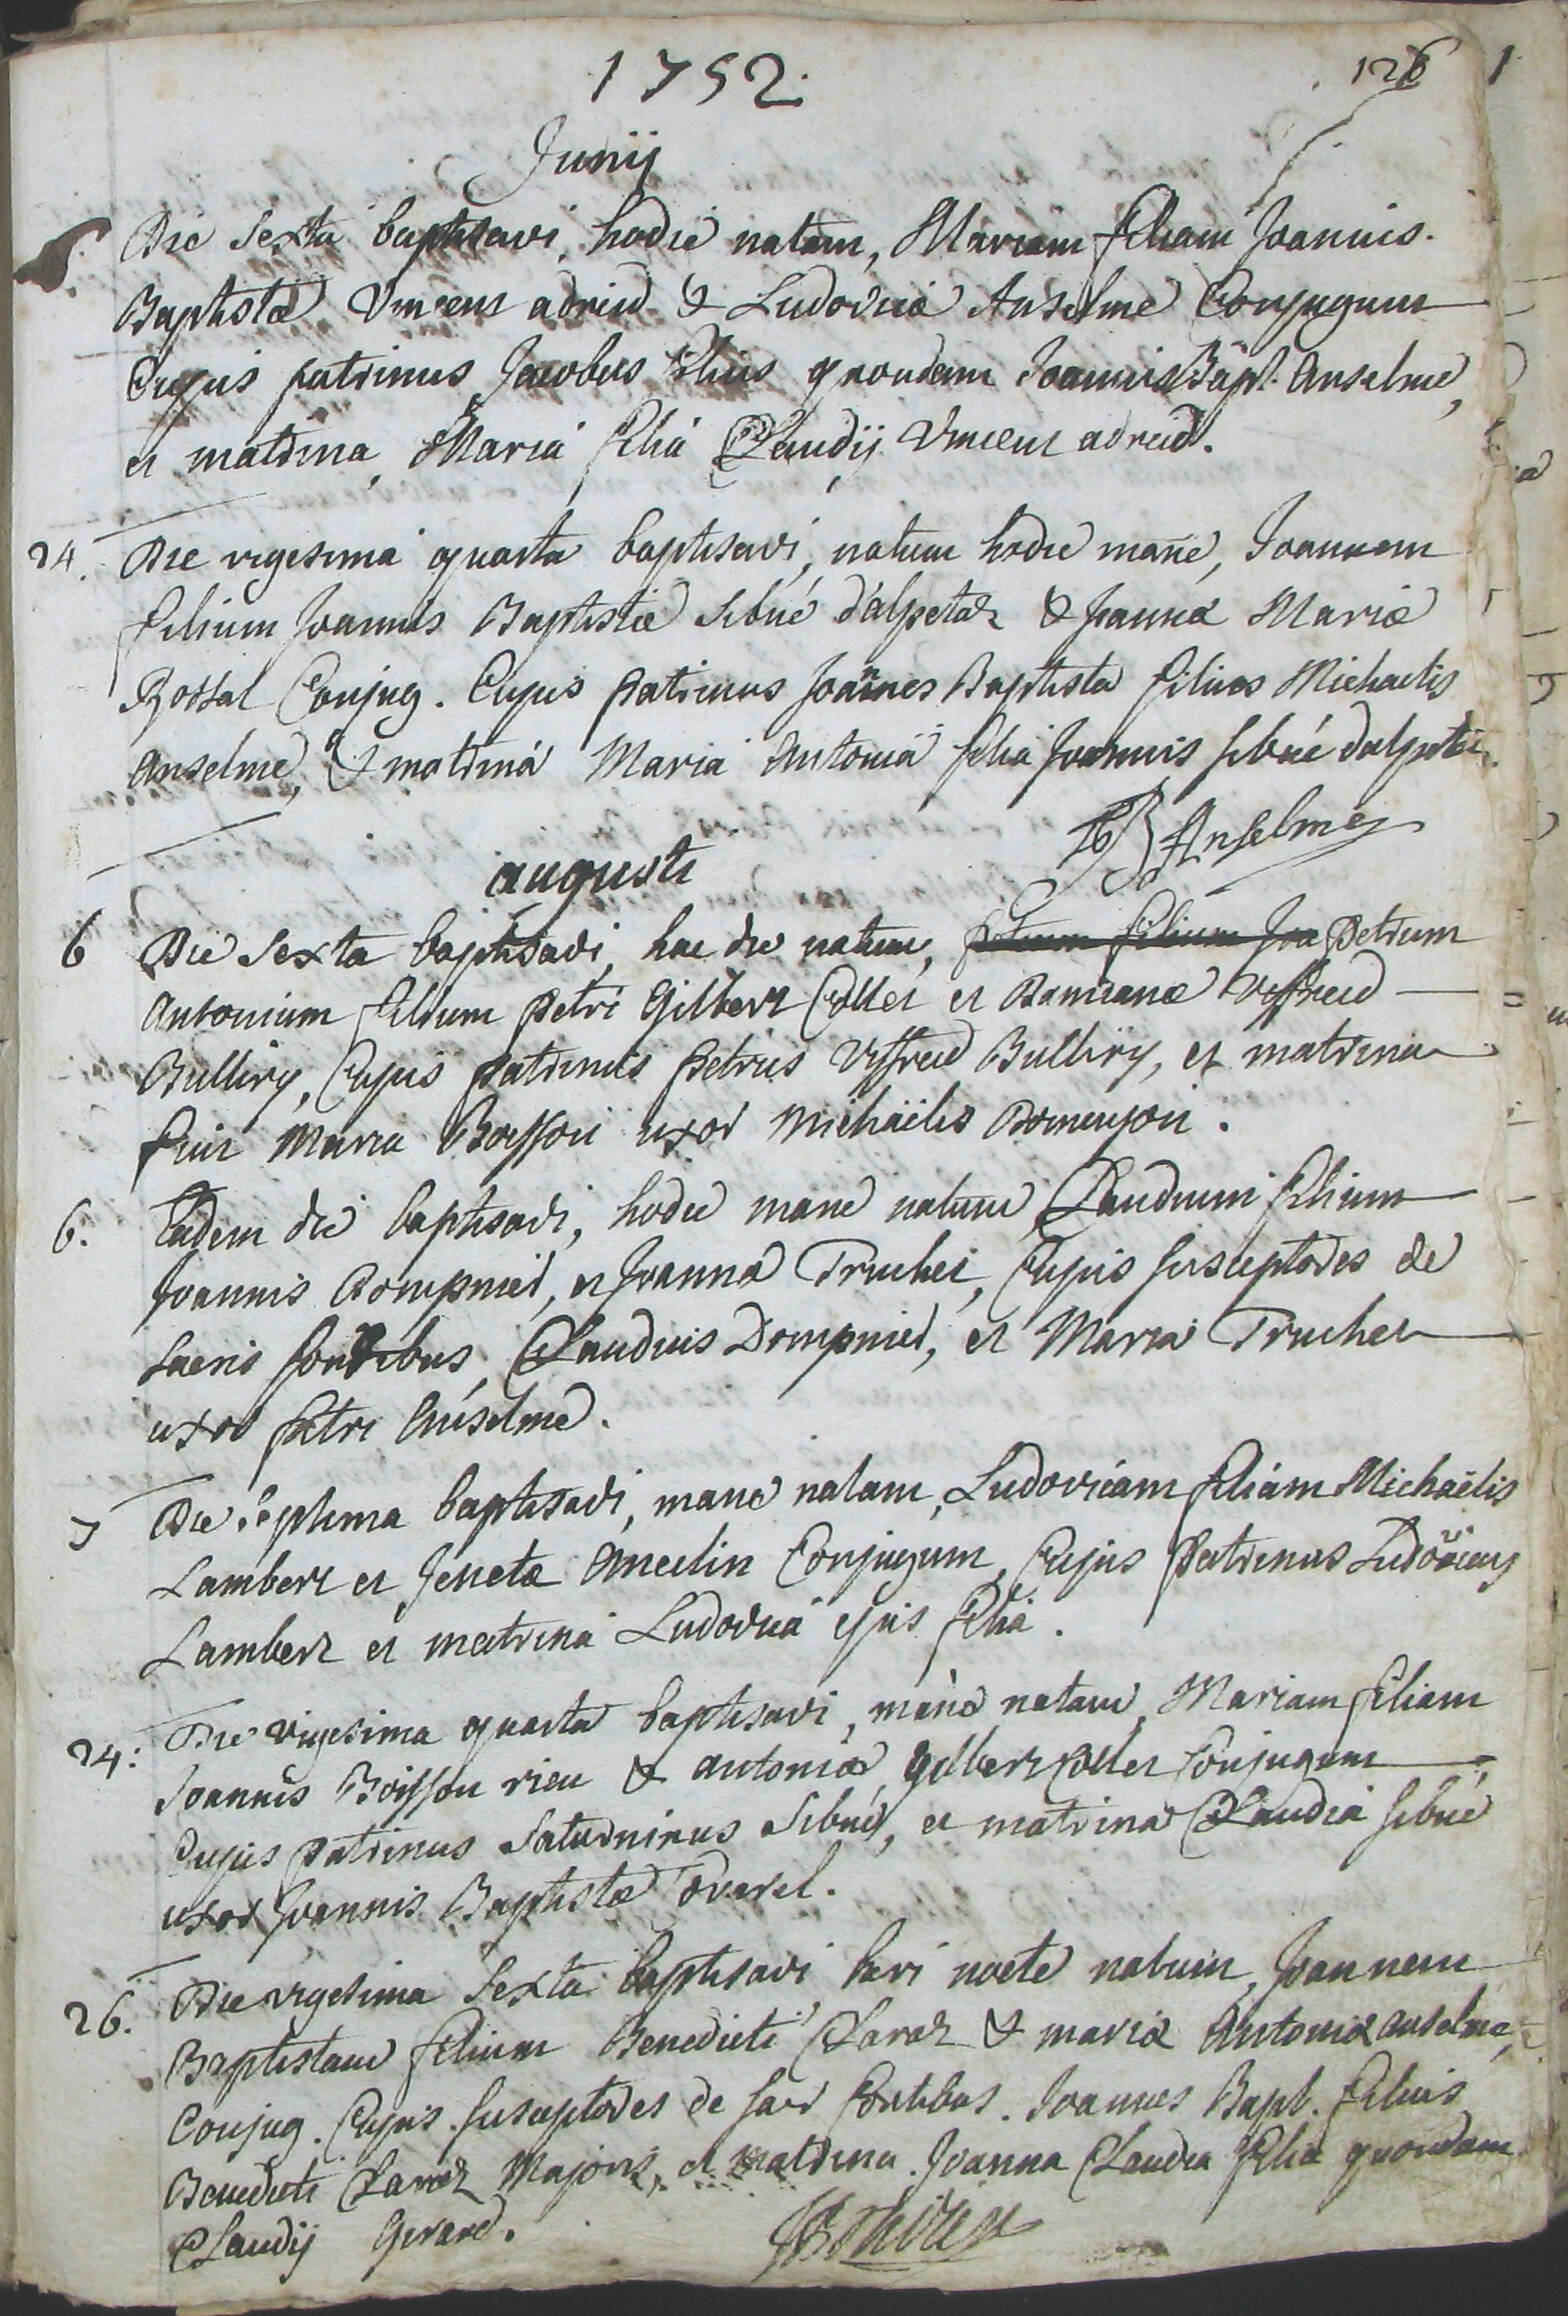 1752.
126
Junij
6. Die Sexta baptisavi, hodie natam, Mariam filiam Joannis
Baptistæ Vincent adried & Ludovicæ Anselme Conjugum
Cujus patrinus Jacobus filius quondam Joannis Bapt. Anselme,
et matrina, Maria filia Claudij Vincent adried.
24. Die vigesima quarta baptisavi, natum hodie mane, Joannem
filium Joannis Baptistæ Sibué d'alpetaz & Joannæ Mariæ
Rostal Conjug. Cujus patrinus Joannes Baptista filius Michaelis
Anselme, & matrina Maria Antonia filia Joannis Sibué dalpetaz.
JB Anselme
augusti
6 Die Sexta baptisavi, hac die natum, Petrum filium Joa Petrum
Antonium filium Petri Gilbert Collet et Damianæ Viffred
Bulliry, Cujus patrinus Petrus Viffred Bulliry, et matrina
fuit Maria Boisson uxor Michaëlis Domenjon.
6. Eadem die baptisavi, hodie mane natum Claudium filium
Joannis Dompnied, et Joannæ Truchet, Cujus susceptores de
Sacris fontibus, Claudius Dompnied, et Maria Truchet
uxor petri Anselme.
7 Die septima baptisavi, mane natam, Ludovicam filiam Michaëlis
Lambert et Jenetæ Ancelin Conjugum, Cujus Patrinus Ludovicus
Lambert et matrina Ludovica ejus filia.
24: Die vigesima quarta baptisavi, mane natam, Mariam filiam
Joannis Boisson rieu & antoniæ Gilbert Collet Conjugum
Cujus patrinus Saturninus Sibué, et matrina Claudia Sibué
uxor Joannis Baptistæ Tvarel.
26. Die vigesima Sexta baptisavi heri nocte natum, Joannem
Baptistam filium Benedicti Claraz & mariæ Antoniæ anselme,
Conjug. Cujus susceptores de sacr fontibus. Joannes Bapt. filius
Benedicti Claraz Majoris, et matrina. Joanna Claudia filia quondam
Claudij Gerard.